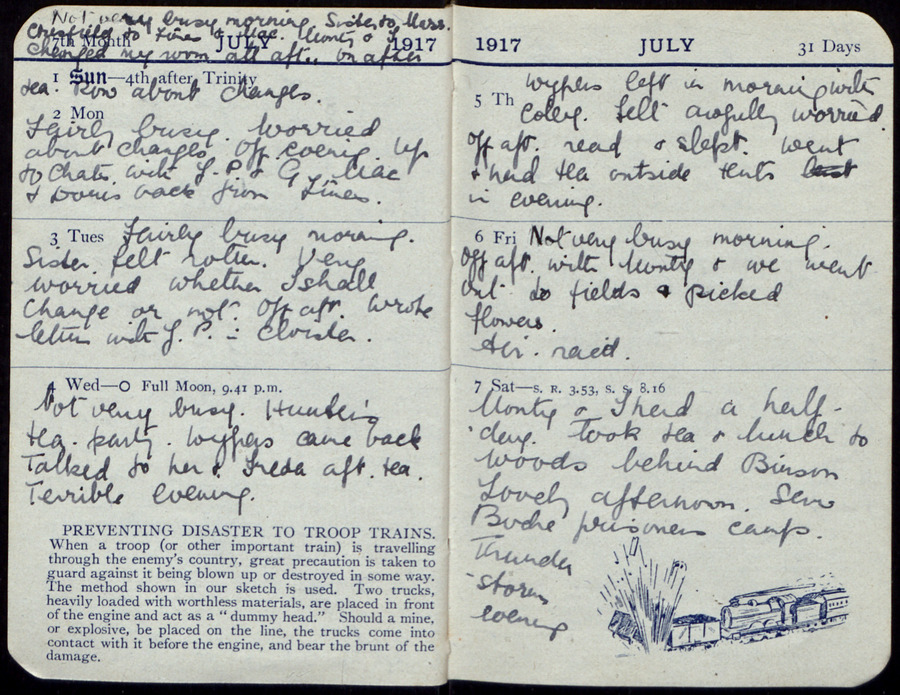 Not very busy morning. Sister to Mass.
to Lines & Mac. Monty & I
changed my room all aft. On after
7th Month JULY 1917
1 Sun—4th after Trinity
tea. Row about changes.
2 Mon
Fairly busy. Worried
about changes. Off evening. Up
to chats with G. P. & G. Mac
& Doris back from Lines.
3 Tues Fairly busy morning.
Sister felt rotten. Very
worried whether I shall
change or not. Off aft. Wrote
letters with G. P. in cloister.
4 Wed—O Full Moon, 9.41 p.m.
Not very busy. Hunter's
tea-party. Wypers came back
Talked to her & Freda aft. tea.
Terrible evening.
PREVENTING DISASTER TO TROOP TRAINS.
When a troop (or other important train) is travelling
through the enemy's country, great precaution is taken to
guard against it being blown up or destroyed in some way.
The method shown in our sketch is used. Two trucks,
heavily loaded with worthless materials, are placed in front
of the engine and act as a "dummy head." Should a mine,
or explosive, be placed on the line, the trucks come into
contact with it before the engine, and bear the brunt of the
damage.
1917 JULY 31 Days
5 Th Wypers left in morning with
Coley. Felt awfully worried.
Off aft. read & slept. Went
& had tea outside tents
in evening.
6 Fri Not very busy morning.
Off aft. with Monty & we went
out to fields & picked
flowers.
Air-raid.
7 Sat—S. R. 3.53, S. S. 8.16
Monty & I had a half-
day. Took tea & lunch to
woods behind Binson
Lovely afternoon. Saw
Boche prisoners camp.
Thunder
storm
evening